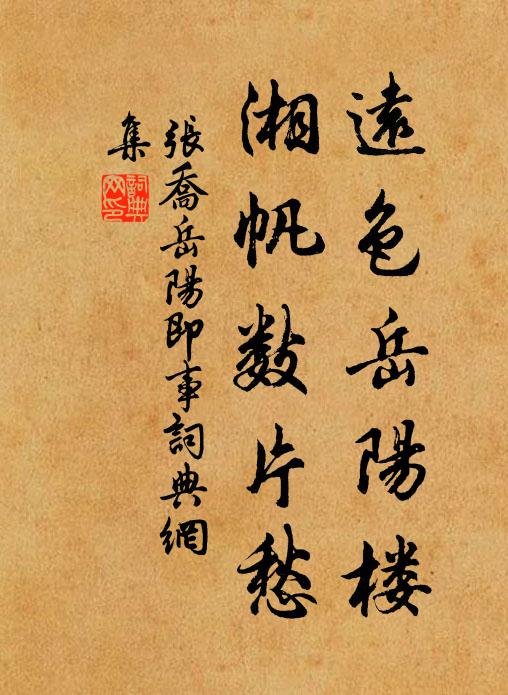 遠色岳陽楼
湘帆数片愁
張喬岳陽即事詞典網
集
詞典
网印